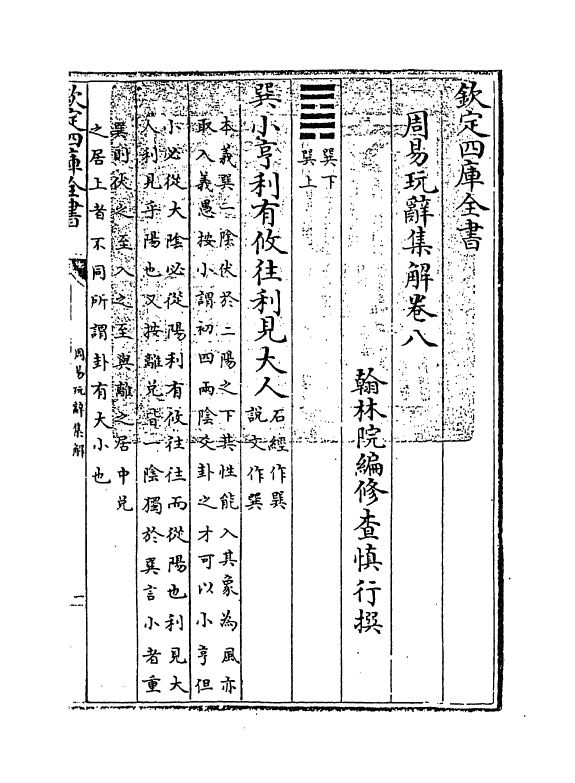 欽定四庫全書
周易玩辭集解卷八
翰林院編修查慎行撰
巽下
巽上
巽小亨利有攸往利見大人
石經作㢲
說文作巺
本義巽一陰伏於二陽之下其性能入其象為風亦
取入義愚按小謂初四兩陰爻卦之才可以小亨但
小必從大陰必從陽利有攸往往而從陽也利見大
人利見乎陽也又按離兌皆一陰獨於巽言小者重
巽則伏之至入之至與離之居中兌
之居上者不同所謂卦有大小也
欽定四庫全書
周易玩辭集解
一